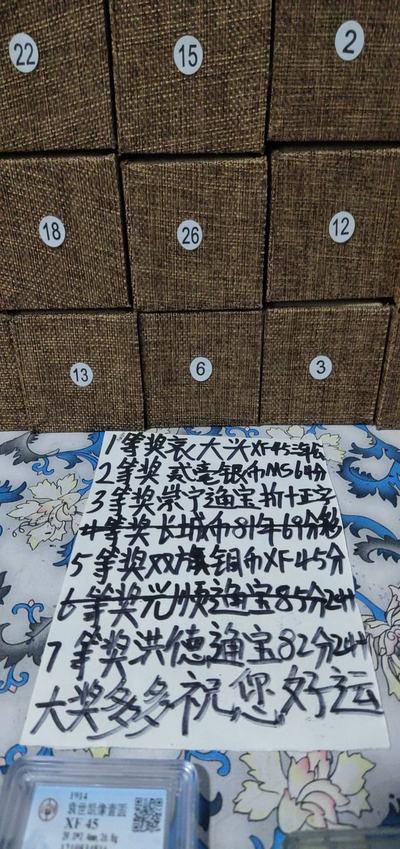 22
15
2
18
26
12
13
6
3
1等奖袁大头XF45三年
2等奖贰毫银币MS64分
3等奖崇宁通宝折十正字
4等奖长城币81年69分
5等奖双旗铜币XF45分
6等奖光顺通宝85分24H
7等奖洪德通宝82分24H
大奖多多祝您好运
1914
袁世凯像壹圆
XF 45